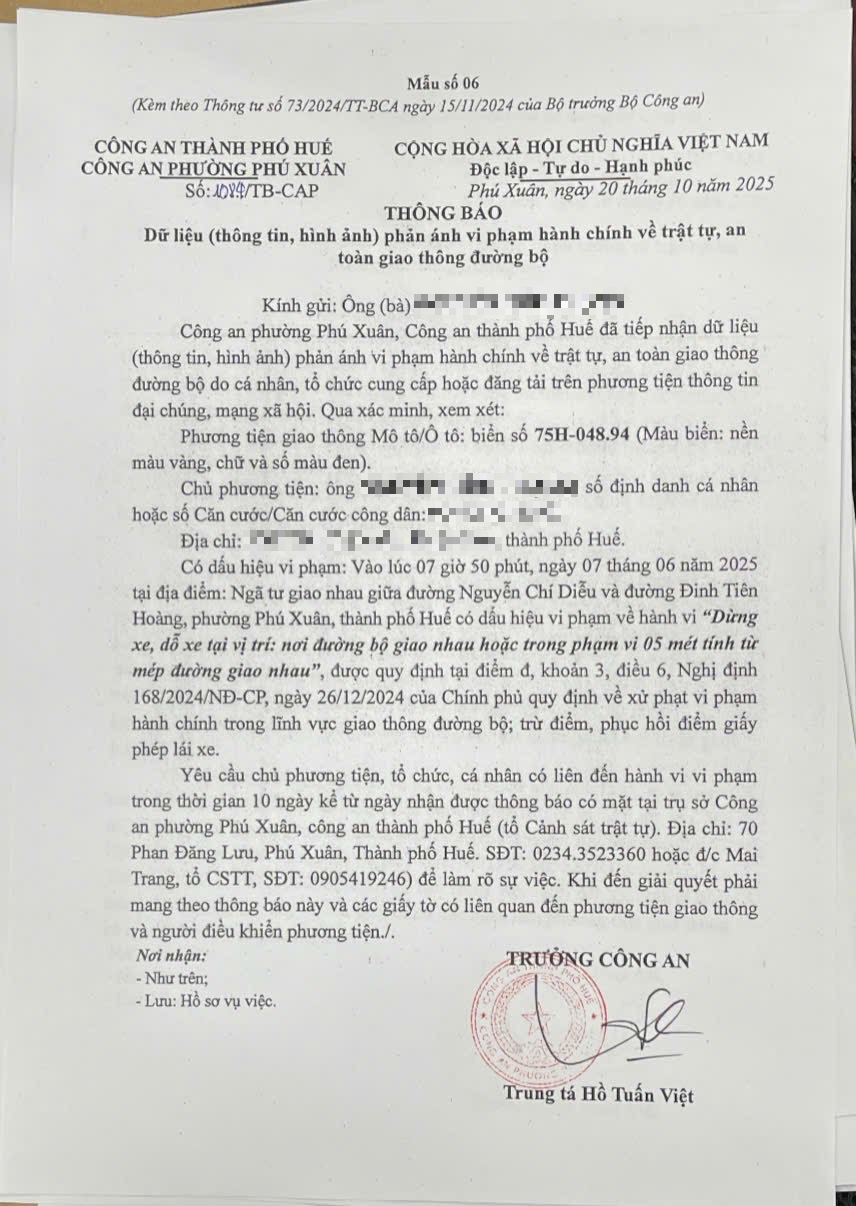 Mẫu số 06
(Kèm theo Thông tư số 73/2024/TT-BCA ngày 15/11/2024 của Bộ trưởng Bộ Công an)
CÔNG AN THÀNH PHỐ HUẾ
CÔNG AN PHƯỜNG PHÚ XUÂN
Số: /TB-CAP
CỘNG HÒA XÃ HỘI CHỦ NGHĨA VIỆT NAM
Độc lập - Tự do - Hạnh phúc
Phú Xuân, ngày 20 tháng 10 năm 2025
THÔNG BÁO
Dữ liệu (thông tin, hình ảnh) phản ánh vi phạm hành chính về trật tự, an
toàn giao thông đường bộ
Kính gửi: Ông (bà)
Công an phường Phú Xuân, Công an thành phố Huế đã tiếp nhận dữ liệu
(thông tin, hình ảnh) phản ánh vi phạm hành chính về trật tự, an toàn giao thông
đường bộ do cá nhân, tổ chức cung cấp hoặc đăng tải trên phương tiện thông tin
đại chúng, mạng xã hội. Qua xác minh, xem xét:
Phương tiện giao thông Mô tô/Ô tô: biển số 75H-048.94 (Màu biển: nền
màu vàng, chữ và số màu đen).
Chủ phương tiện: ông số định danh cá nhân
hoặc số Căn cước/Căn cước công dân:
Địa chỉ: , thành phố Huế.
Có dấu hiệu vi phạm: Vào lúc 07 giờ 50 phút, ngày 07 tháng 06 năm 2025
tại địa điểm: Ngã tư giao nhau giữa đường Nguyễn Chí Diễu và đường Đinh Tiên
Hoàng, phường Phú Xuân, thành phố Huế có dấu hiệu vi phạm về hành vi “Dừng
xe, đỗ xe tại vị trí: nơi đường bộ giao nhau hoặc trong phạm vi 05 mét tính từ
mép đường giao nhau”, được quy định tại điểm đ, khoản 3, điều 6, Nghị định
168/2024/NĐ-CP, ngày 26/12/2024 của Chính phủ quy định về xử phạt vi phạm
hành chính trong lĩnh vực giao thông đường bộ; trừ điểm, phục hồi điểm giấy
phép lái xe.
Yêu cầu chủ phương tiện, tổ chức, cá nhân có liên đến hành vi vi phạm
trong thời gian 10 ngày kể từ ngày nhận được thông báo có mặt tại trụ sở Công
an phường Phú Xuân, công an thành phố Huế (tổ Cảnh sát trật tự). Địa chỉ: 70
Phan Đăng Lưu, Phú Xuân, Thành phố Huế. SĐT: 0234.3523360 hoặc đ/c Mai
Trang, tổ CSTT, SĐT: 0905419246) để làm rõ sự việc. Khi đến giải quyết phải
mang theo thông báo này và các giấy tờ có liên quan đến phương tiện giao thông
và người điều khiển phương tiện./.
Nơi nhận:
- Như trên;
- Lưu: Hồ sơ vụ việc.
TRƯỞNG CÔNG AN
Trung tá Hồ Tuấn Việt